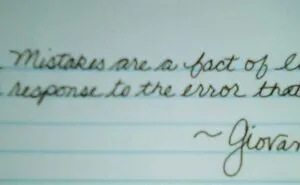 Mistakes are a fact of
response to the error that
~